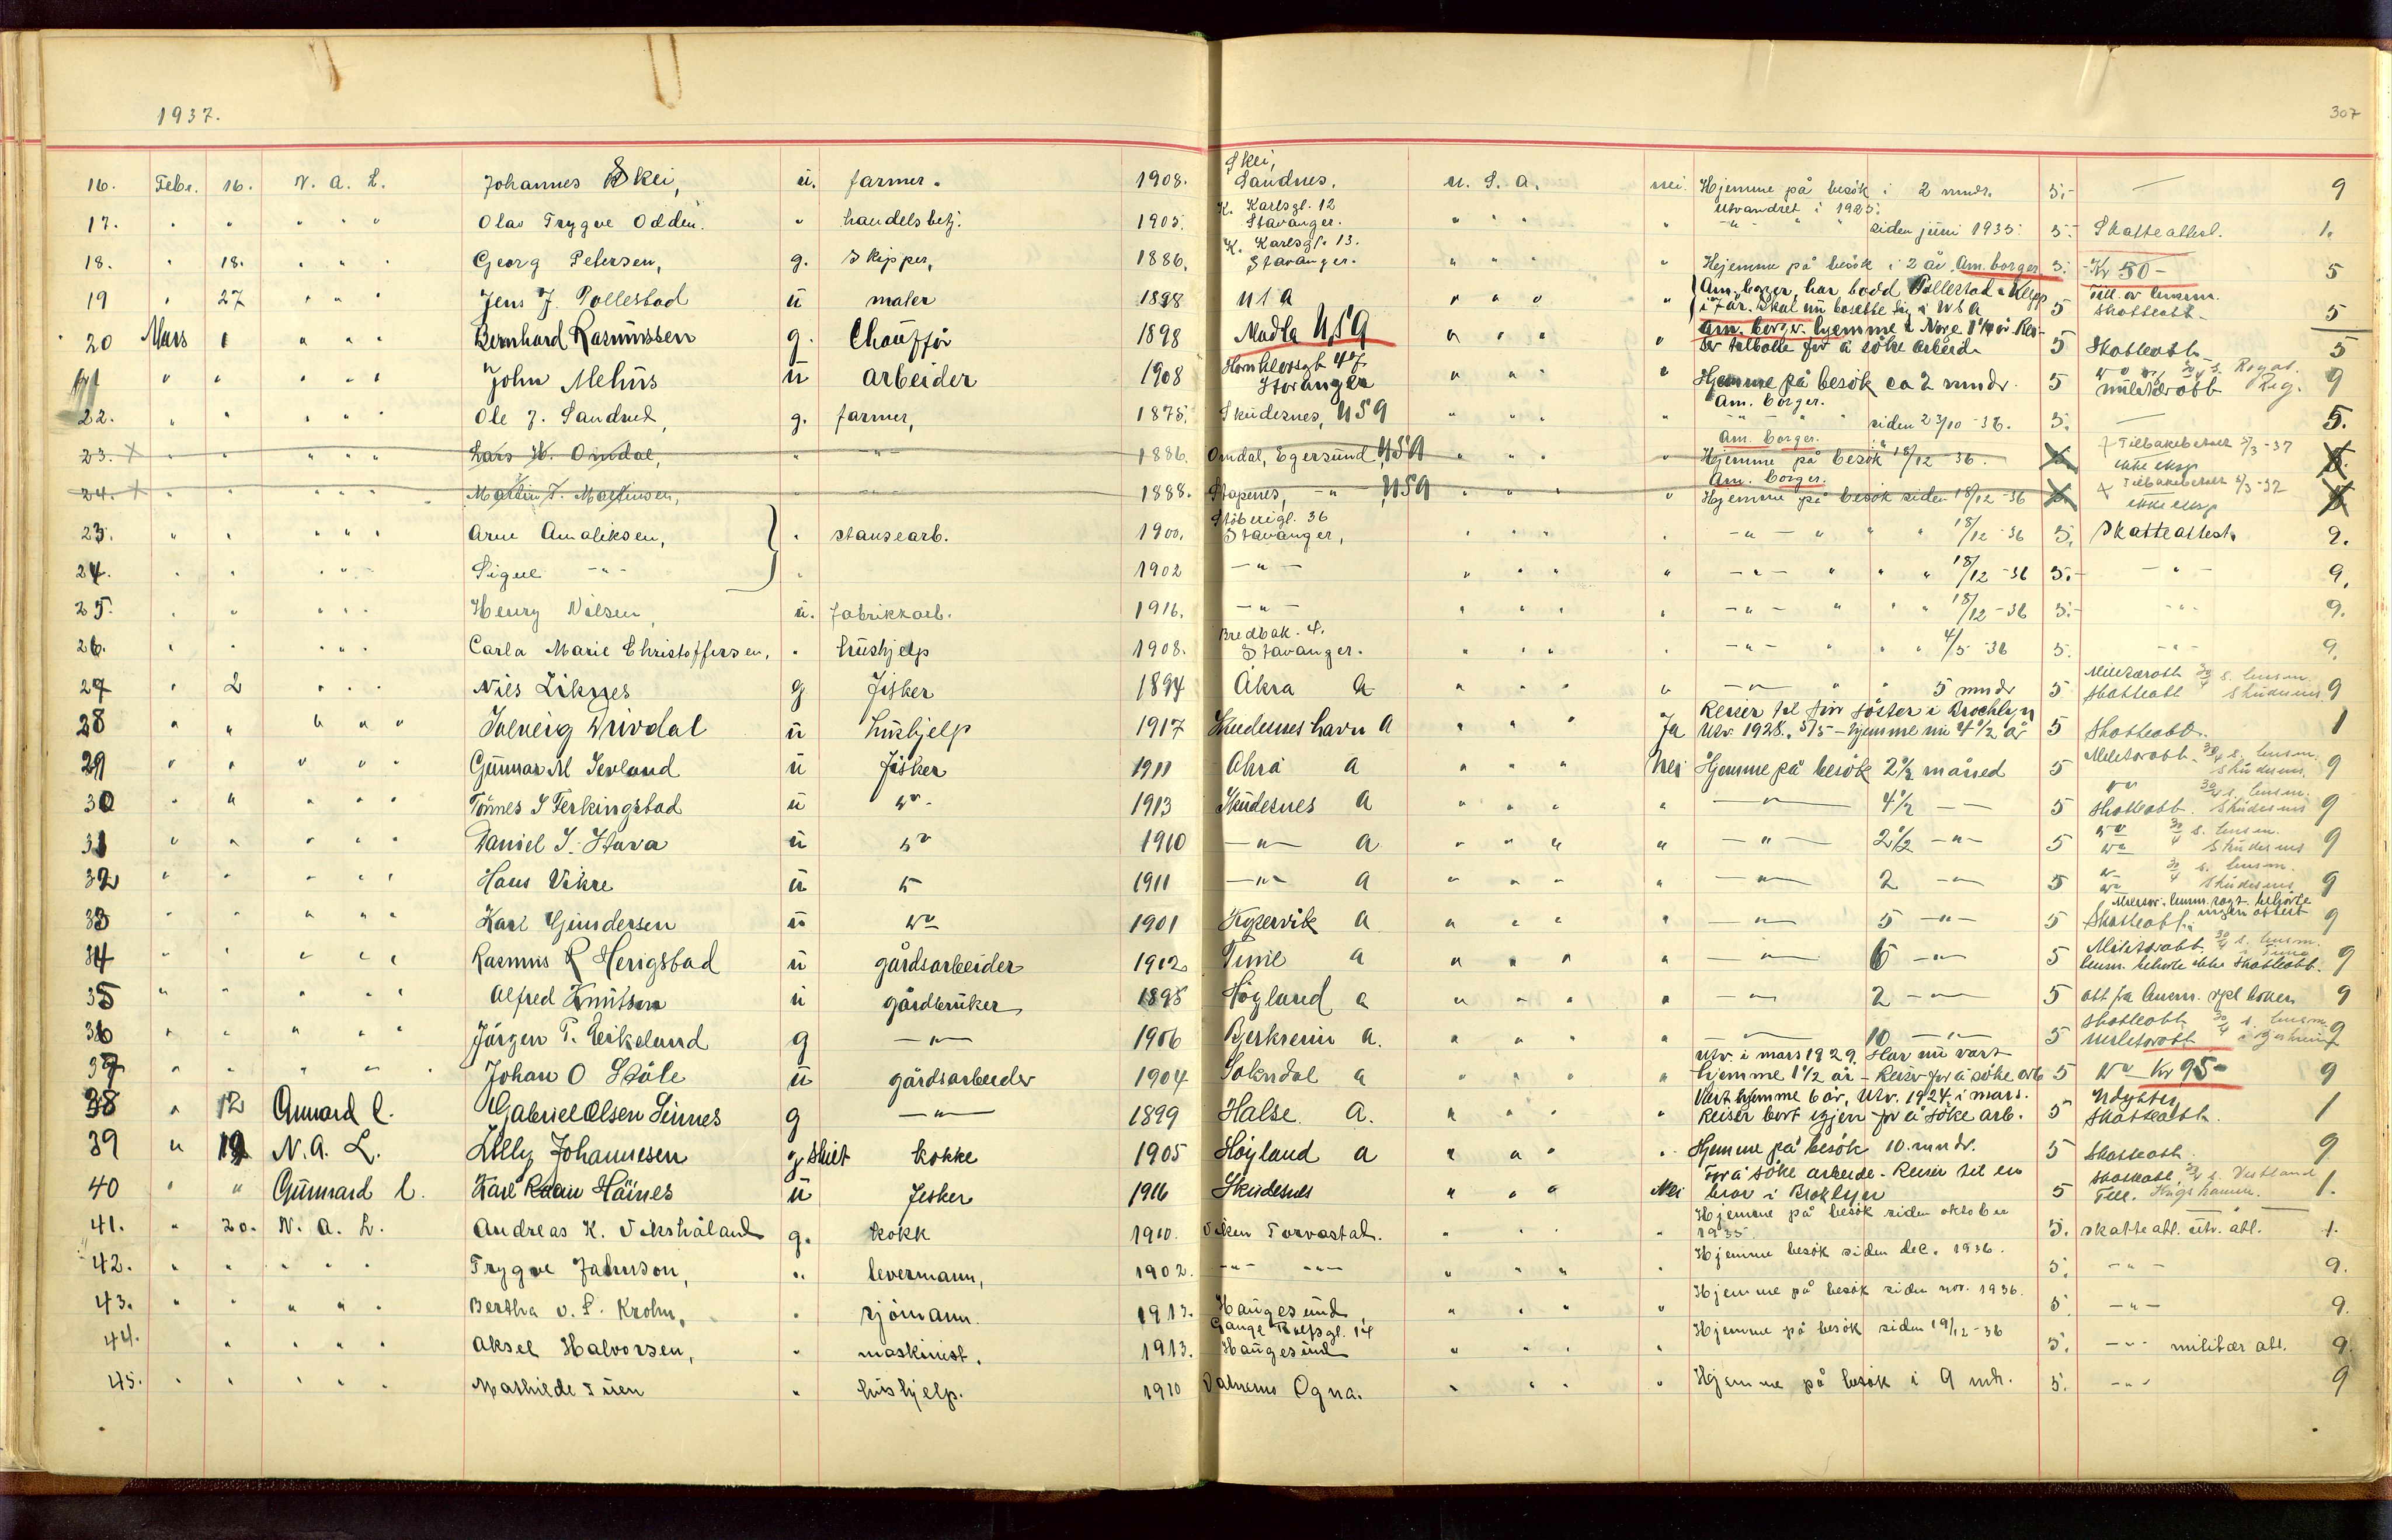 1937.
307
16. Febr. 16. N. A. L. Johannes Skei, u. farmer. 1908. Skei, Sandnes. U. S. A. nei. Hjemme på besøk i 2 mndr. 5.- — 9
Utvandret i 1925.
17. " " " " " Olav Trygve Odden. " handelsbetj. 1905. K. Karlsgt. 12 Stavanger. " " " " -"- " siden juni 1935. 5.- Skatteattest. 1.
18. " 18. " " " Georg Petersen, g. skipper, 1886. K. Karlsgt. 13. Stavanger. " " " " Hjemme på besøk i 2 år. Am. borger 5. -Kr 50- 5
19 " 27 " " " Jens J. Pollestad u maler 1898 USA " " " " Am. borger, har bodd Pollestad i Klepp
i 7 år. Skal nu bosette sig i USA 5 Till. av lensm. skatteatt- 5
20 Mars 1 " " " Bernhard Rasmussen g. Chauffør 1898 Madla USA " " " " Am. borger. hjemme i Norge
ser tilbake for å søke arbeid 5 Skatteatt- 5
" " " " " John Mehus u arbeider 1908 Stavanger " " " " Hjemme på besøk ca 2 mndr. 5 militæratt 9
22. " " " " " Ole J. Sandved, g. farmer, 1875. Skudesnes, USA " " " " Am. borger. -"- " " siden 23/10-36. 5. — 5.
23. + " " " " " Lars W. Omdal, " -"- 1886. Omdal, Egersund, USA " " " " Am. borger. Hjemme på besøk i 18/12-36. + Tilbakebetalt 3/3-37 ikke eksp
24. + " " " " " Martin T. Martinsen, -"- 1888. Stapnes, -"-, USA " " " " Am. borger. Hjemme på besøk siden 18/12-36 + Tilbakebetalt 3/3-37 ikke eksp
23. " " " " " Arne Amaliksen, " stansearb. 1900. Støberigt. 36 Stavanger, " " " " -"- " " " 18/12-36 5. Skatteattest. 9.
24. " " " " " Signe -"- " 1902 -"- " " " " -"- " " " 18/12-36 5.- -"- 9.
25. " " " " " Henry Nilsen, u. fabrikkarb. 1916. -"- " " " " -"- " " " 18/12-36 5.- -"- 9.
26. " " " " " Carla Marie Christoffersen, " hushjelp 1908. Bredbak. 4. Stavanger. " " " " -"- " " " 4/5-36 5. -"- 9.
27 " 2 " " " Nils Liknes g fisker 1894 Åkra A " " " " -"- " " 5 mndr 5 Militæratt 30/4 s. lensm. skatteatt Skudesnes 9
28 " " " " " Solveig Drivdal u hushjelp 1917 Skudesneshavn A " " " Ja Reiser til sin søster i Brooklyn
Utv. 1928. - hjemme nu 4 1/2 år 5 Skatteatt. 1
29 " " " " " Gunnar M Sevland u fisker 1911 Åkra A " " " Nei Hjemme på besøk 2 1/2 måned 5 Militæratt. 30/4 s. lensm. Skudesnes. 9
30 " " " " " Tønnes S Ferkingstad u " 1913 Skudesnes A " " " " -"- 4 1/2 -"- 5 " 30/4 s. lensm. skatteatt. Skudesnes 9
31 " " " " " Daniel S. Stava u " 1910 -"- A " " " " -"- 2 1/2 -"- 5 " 30/4 s. lensm. " Skudesnes 9
32 " " " " " Hans Vikre u " 1911 -"- A " " " " -"- 2 -"- 5 " 30/4 s. lensm. " Skudesnes 9
33 " " " " " Karl Gundersen u " 1901 Kopervik A " " " " -"- 5 -"- 5 Skatteatt. ingen attest 9
34 " " " " " Rasmus R Herigstad u gårdsarbeider 1912 Time A " " " " -"- 6 -"- 5 Militæratt 30/4 s. lensm. Time
lensm. behøvte ikke skatteatt. 9
35 " " " " " Alfred Knutsen u gårdbruker 1895 Høyland A " " " " -"- 2 -"- 5 att fra lensm. 9
36 " " " " " Jørgen T. Eikeland g -"- 1906 Bjerkreim A. " " " " -"- 10 -"- 5 skatteatt 30/4 s. lensm. militæratt i Bjerkreim 9
37 " " " " " Johan O Ståle u gårdsarbeider 1904 Sokndal A " " " " Utv. i mars 1929. Har nu vært
hjemme 1 1/2 år - Reiser for å søke arb 5 " Kr 95- 9
38 " 12 Cunard l. Gabriel Olsen Sinnes g -"- 1899 Halse A. " " " " Vært hjemme 6 år, Utv. 1924 i mars.
Reiser bort igjen for å søke arb. 5 Skatteatt. 1
39 " 19 N. A. L. Lilly Johannesen g skilt kokke 1905 Høyland A " " " " Hjemme på besøk 10. mndr. 5 Skatteatt. 9
40 " " Gunnard l. Karl Håines u fisker 1916 Skudesnes " " " Nei For å søke arbeide - Reiser til en
bror i Broklyn 5 skatteatt. 1.
41. " 20. N. A. L. Andreas K. Vikshåland g. kokk 1910. Viken Torvastad. " " " " Hjemme på besøk siden oktober
1935. 5. skatteatt. utv. att. 1.
42. " " " " " Trygve Jahnson, " levermann, 1902. -"- -"- " " " " Hjemme besøk siden dec. 1936. 5. -"- 9.
43. " " " " " Bertha v. S. Krohn, " sjømann. 1913. Haugesund " " " " Hjemme på besøk siden nov. 1936. 5. -"- 9.
44. " " " " Aksel Halvorsen, " maskinist. 1913. Gange Rolfsgt. 14 Haugesund " " " " Hjemme på besøk siden 19/12-36 5. -"- militær att. 9.
45. " " " " " Mathilde Tuen " hushjelp. 1910 Ogna. " " " " Hjemme på besøk i 9 mdr. 5. -"- 9